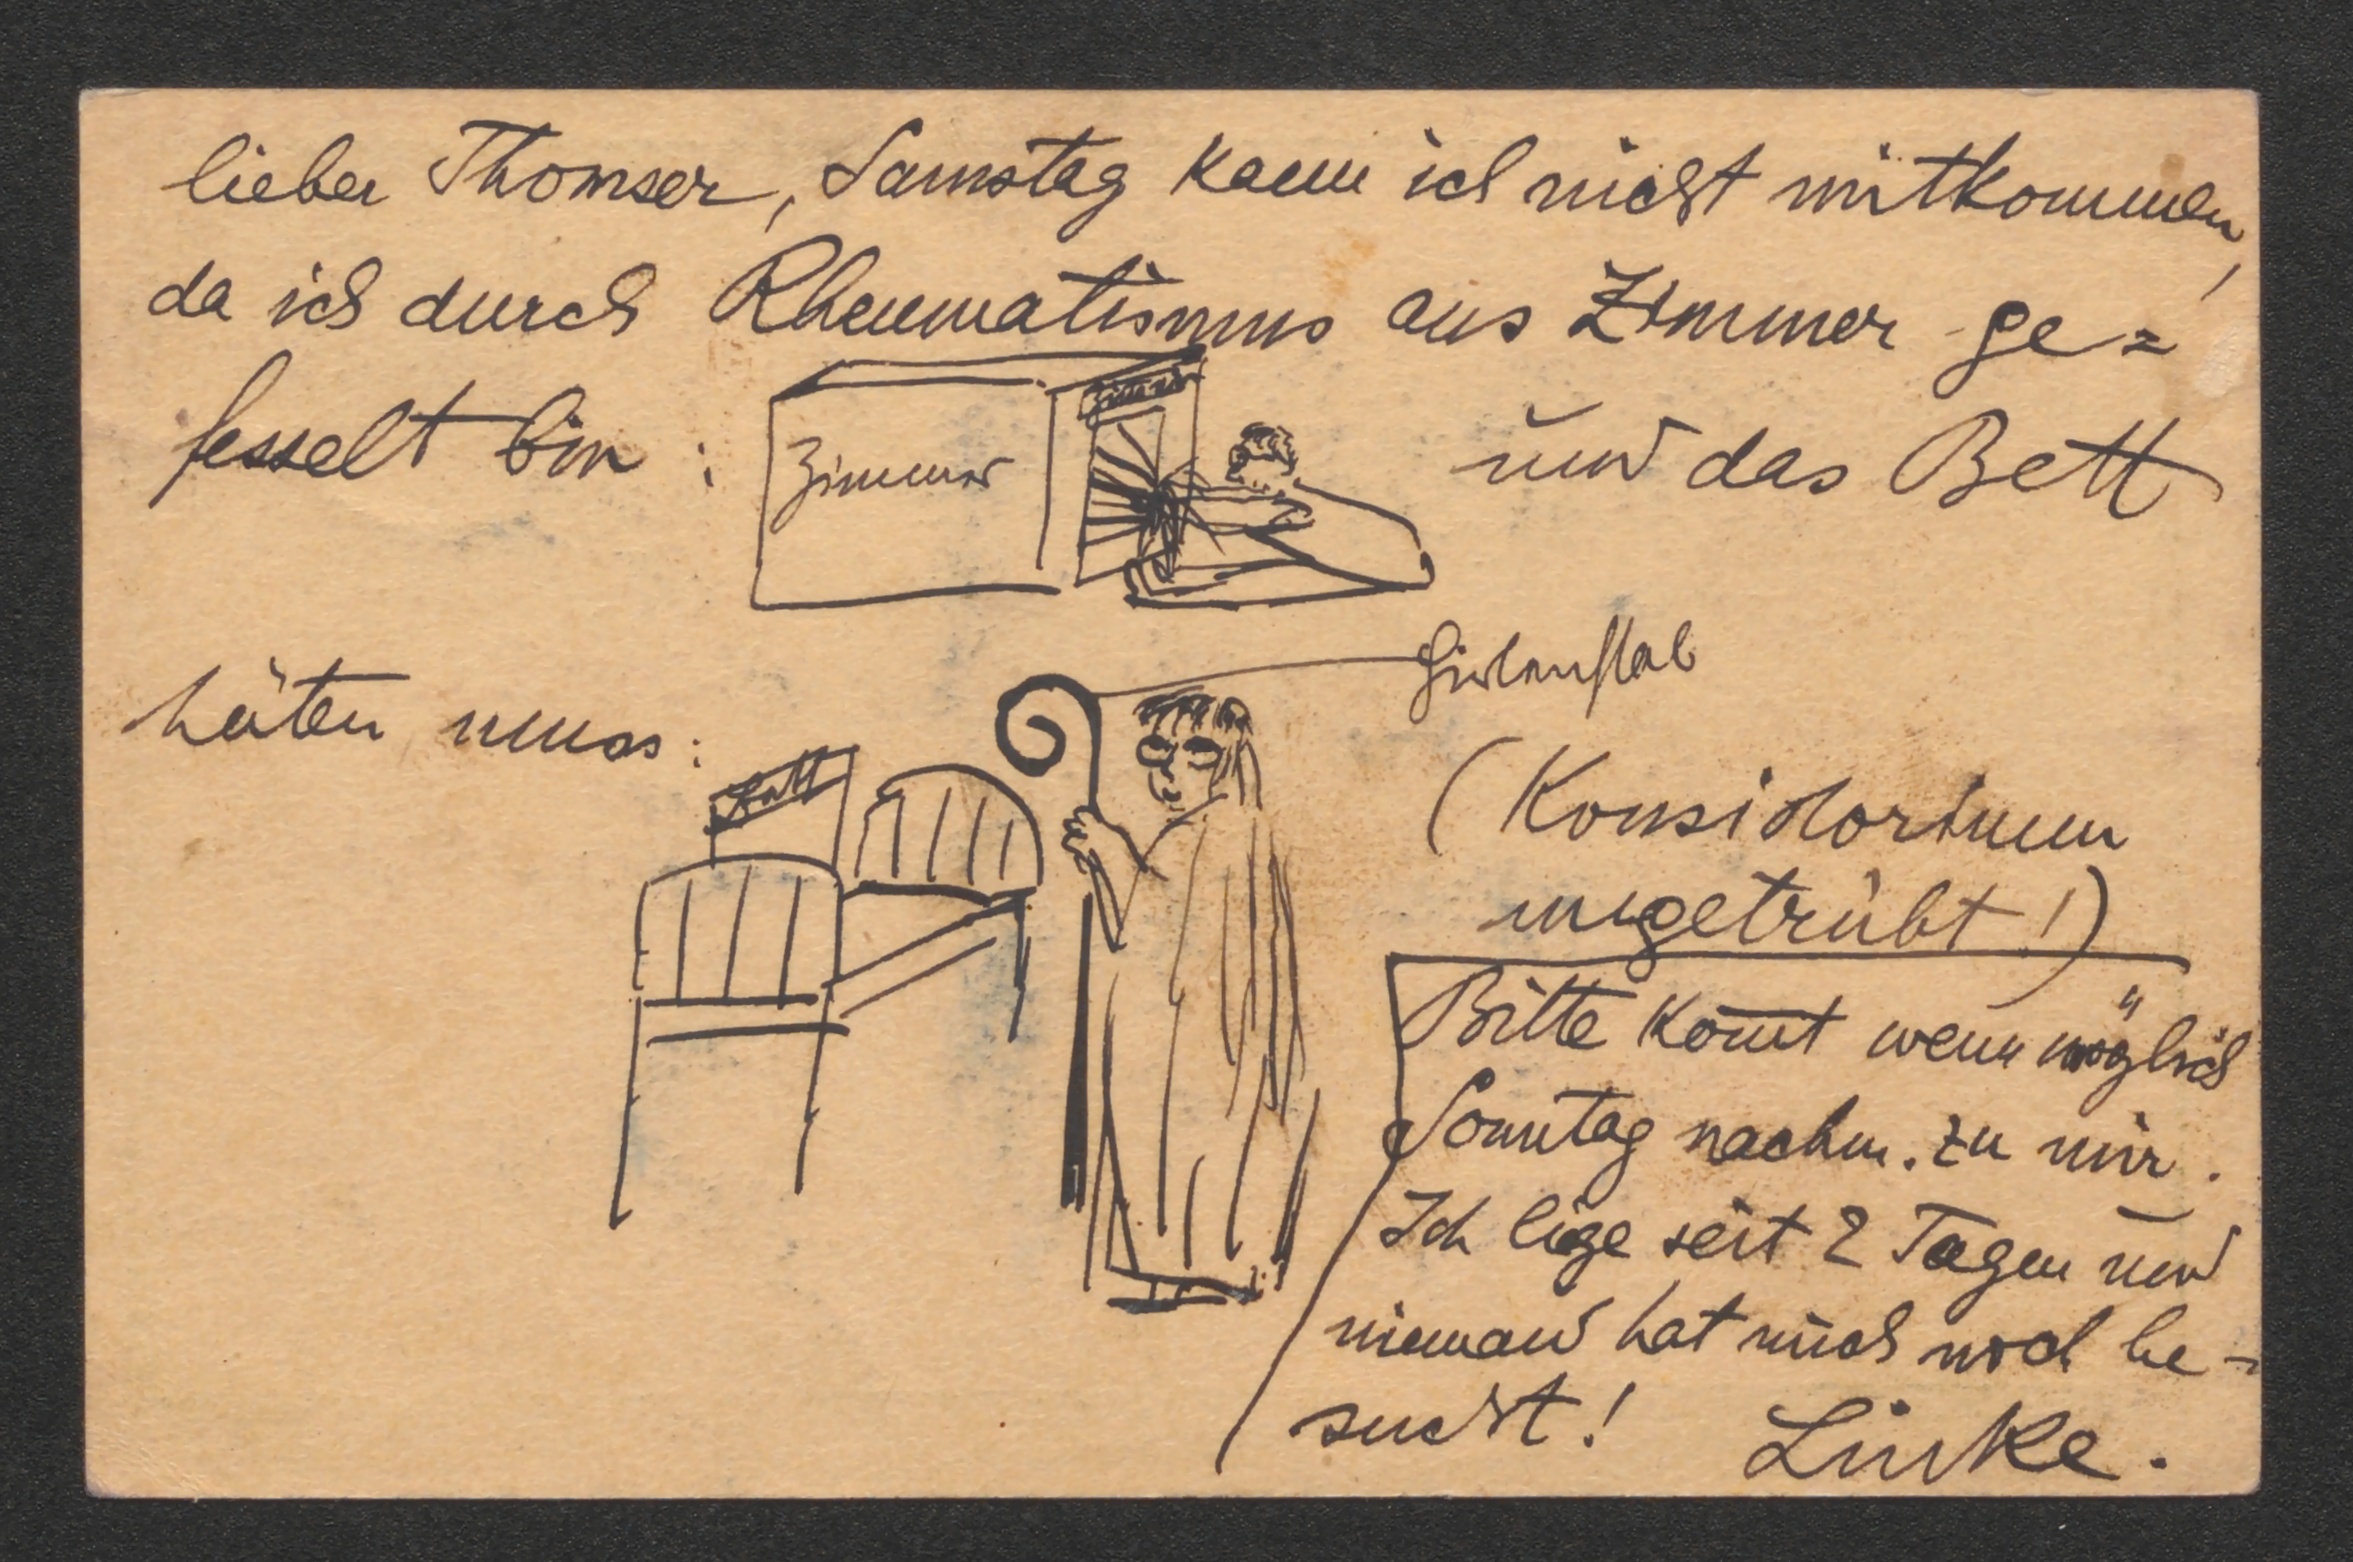 lieber Thomser, Samstag kann ich nicht mitkommen,
da ich durch Rheumatismus ans Zimmer ge=
fesselt bin :
Zimmer
Zimmer
und das Bett
hüten muss :
Bett
Hirtenstab
(Konsidorium
ungetrübt!)
Bitte kom̄t wenn möglich
Sonntag nachm. zu mir.
Ich liege seit 2 Tagen und
niemand hat mich noch be-
sucht! Linke.